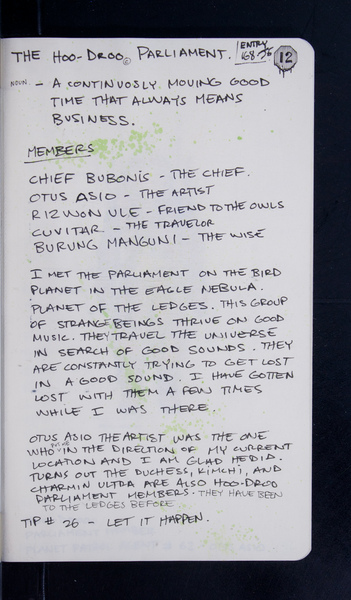 THE HOO-DROO PARLIAMENT. ENTRY 168-26 12
NOUN - A CONTINUOSLY MOVING GOOD
TIME THAT ALWAYS MEANS
BUSINESS.
MEMBERS
CHIEF BUBONIS - THE CHIEF.
OTUS ASIO - THE ARTIST
RIZWON ULE - FRIEND TO THE OWLS
CUVITAR - THE TRAVELOR
BURUNG MANGUNI - THE WISE
I MET THE PARLIAMENT ON THE BIRD
PLANET IN THE EAGLE NEBULA.
PLANET OF THE LEDGES. THIS GROUP
OF STRANGE BEINGS THRIVE ON GOOD
MUSIC. THEY TRAVEL THE UNIVERSE
IN SEARCH OF GOOD SOUNDS. THEY
ARE CONSTANTLY TRYING TO GET LOST
IN A GOOD SOUND. I HAVE GOTTEN
LOST WITH THEM A FEW TIMES
WHILE I WAS THERE.
OTUS ASIO THE ARTIST WAS THE ONE
WHO PUT ME IN THE DIRECTION OF MY CURRENT
LOCATION AND I AM GLAD HE DID.
TURNS OUT THE DUCHESS, KIMCHI, AND
CHARMIN ULTRA ARE ALSO HOO-DROO
PARLIAMENT MEMBERS. THEY HAVE BEEN
TO THE LEDGES BEFORE
TIP # 26 - LET IT HAPPEN.